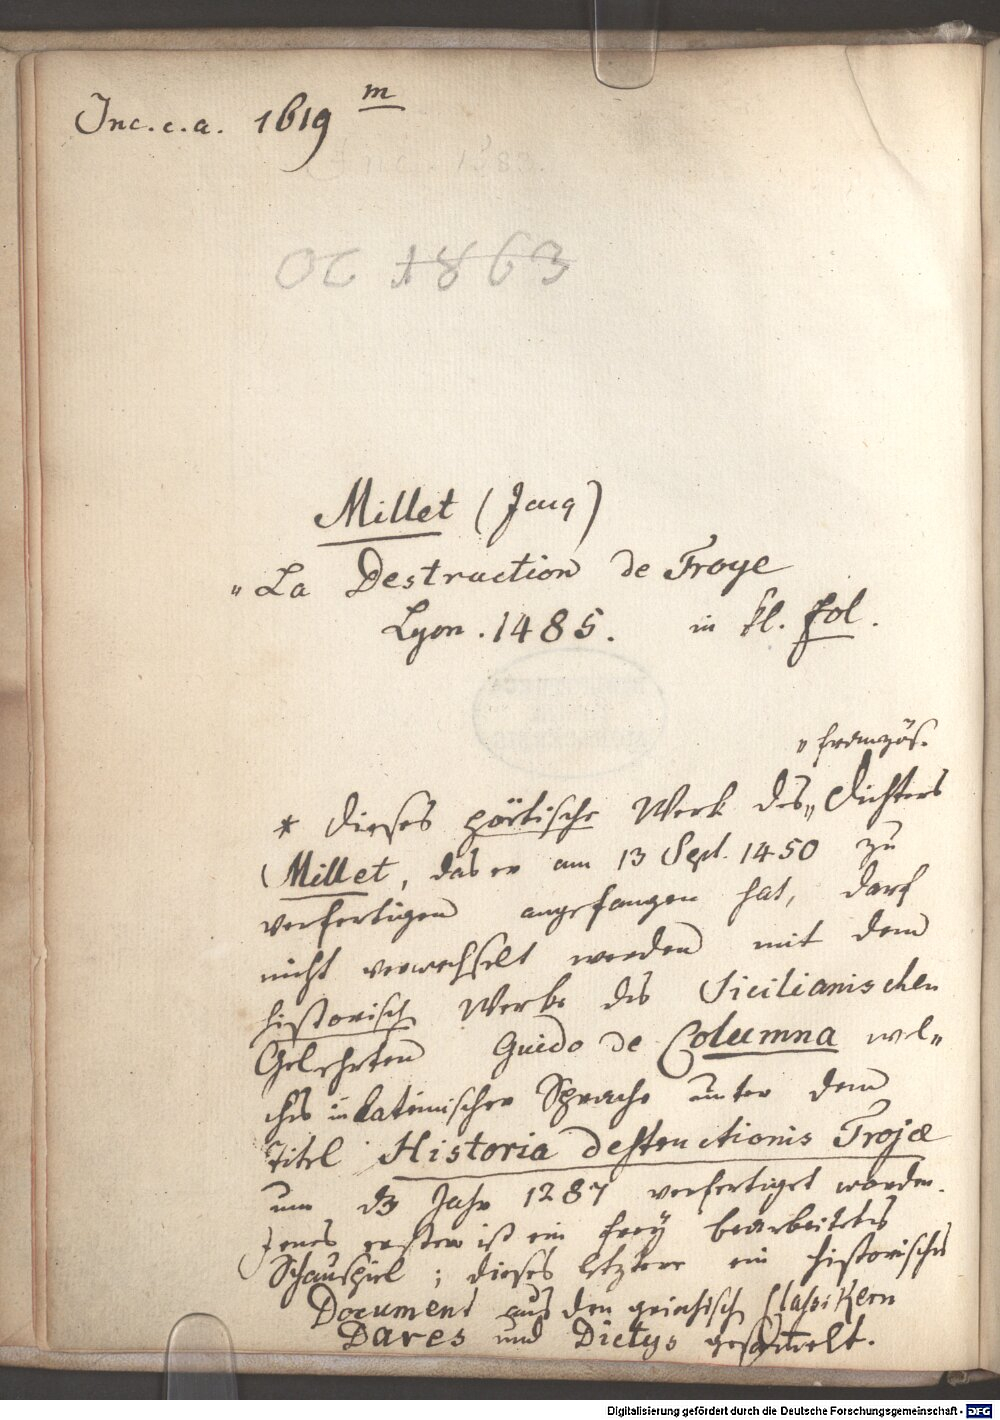 Inc. c. a. 1619 m
OC 1863
Millet (Jaug)
„La Destruction de Troye
Lyon. 1485. in kl. fol.
„französ.
* Dieses pöetische Werk des „Dichters
Millet, das er am 13 Sept. 1450 zu
verfertigen angefangen hat, darf
nicht verwechselt werden mit dem
historisch Werke des Sicilianischen
Gelehrten Guido de Columna wel„
ches in lateinischer Sprache unter dem
Titel Historia destructionis Trojæ
um das Jahr 1287 verfertiget worden.
Jenes erstere ist ein frey bearbeitetes
Schauspiel; dieses letztere ein historisches
Document aus den griechisch Classikern
Dares und Dictys gesammelt.
Digitalisierung gefördert durch die Deutsche Forschungsgemeinschaft - DFG